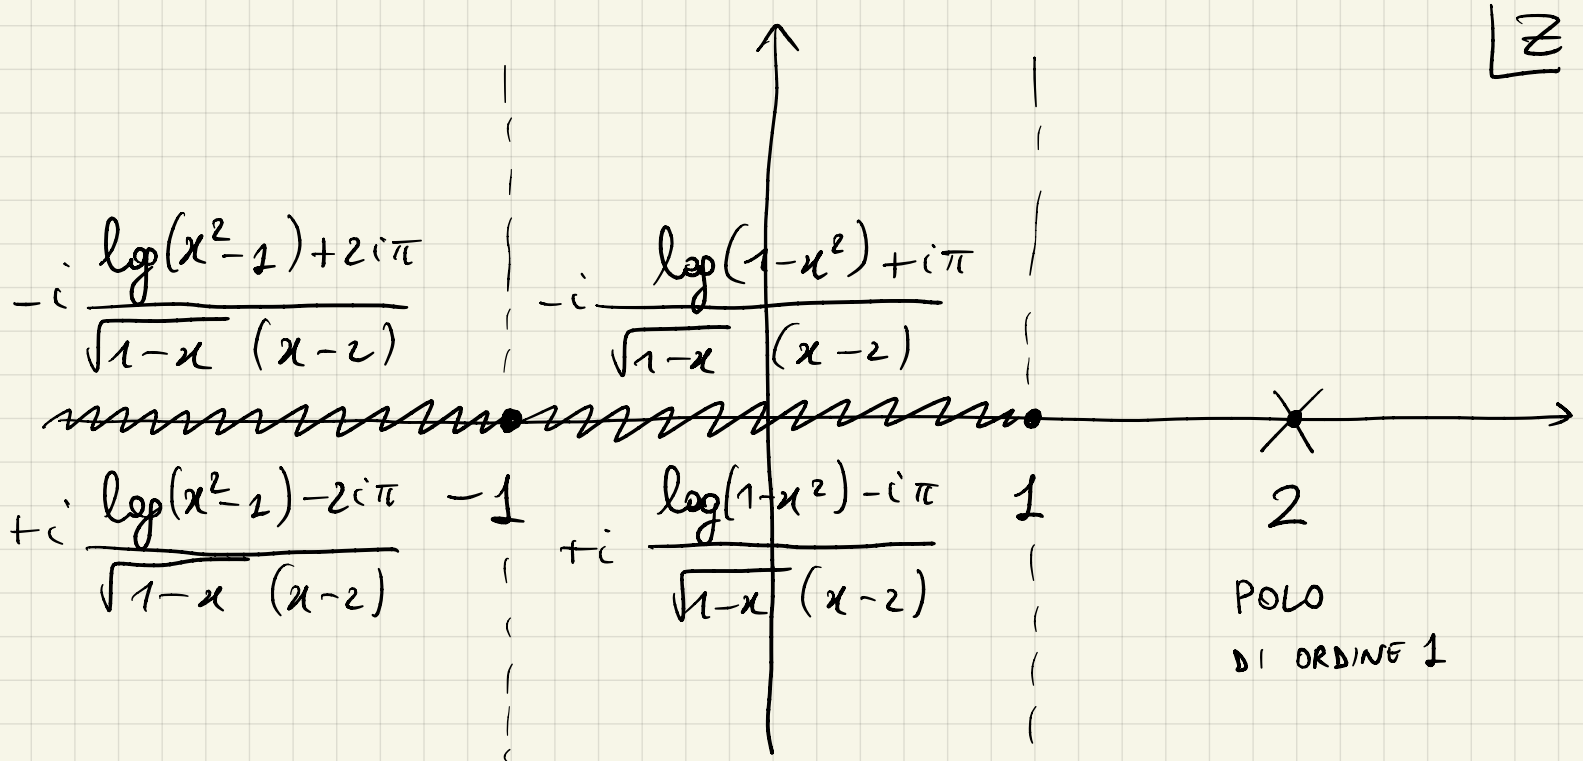 z
-i \frac{log(x²-1)+2iπ}{\sqrt{1-x} (x-2)}
-i \frac{log(1-x²)+iπ}{\sqrt{1-x} (x-2)}
+i \frac{log(x²-1)-2iπ}{\sqrt{1-x} (x-2)}
-1
+i \frac{log(1-x²)-iπ}{\sqrt{1-x} (x-2)}
1
2
POLO
DI ORDINE 1